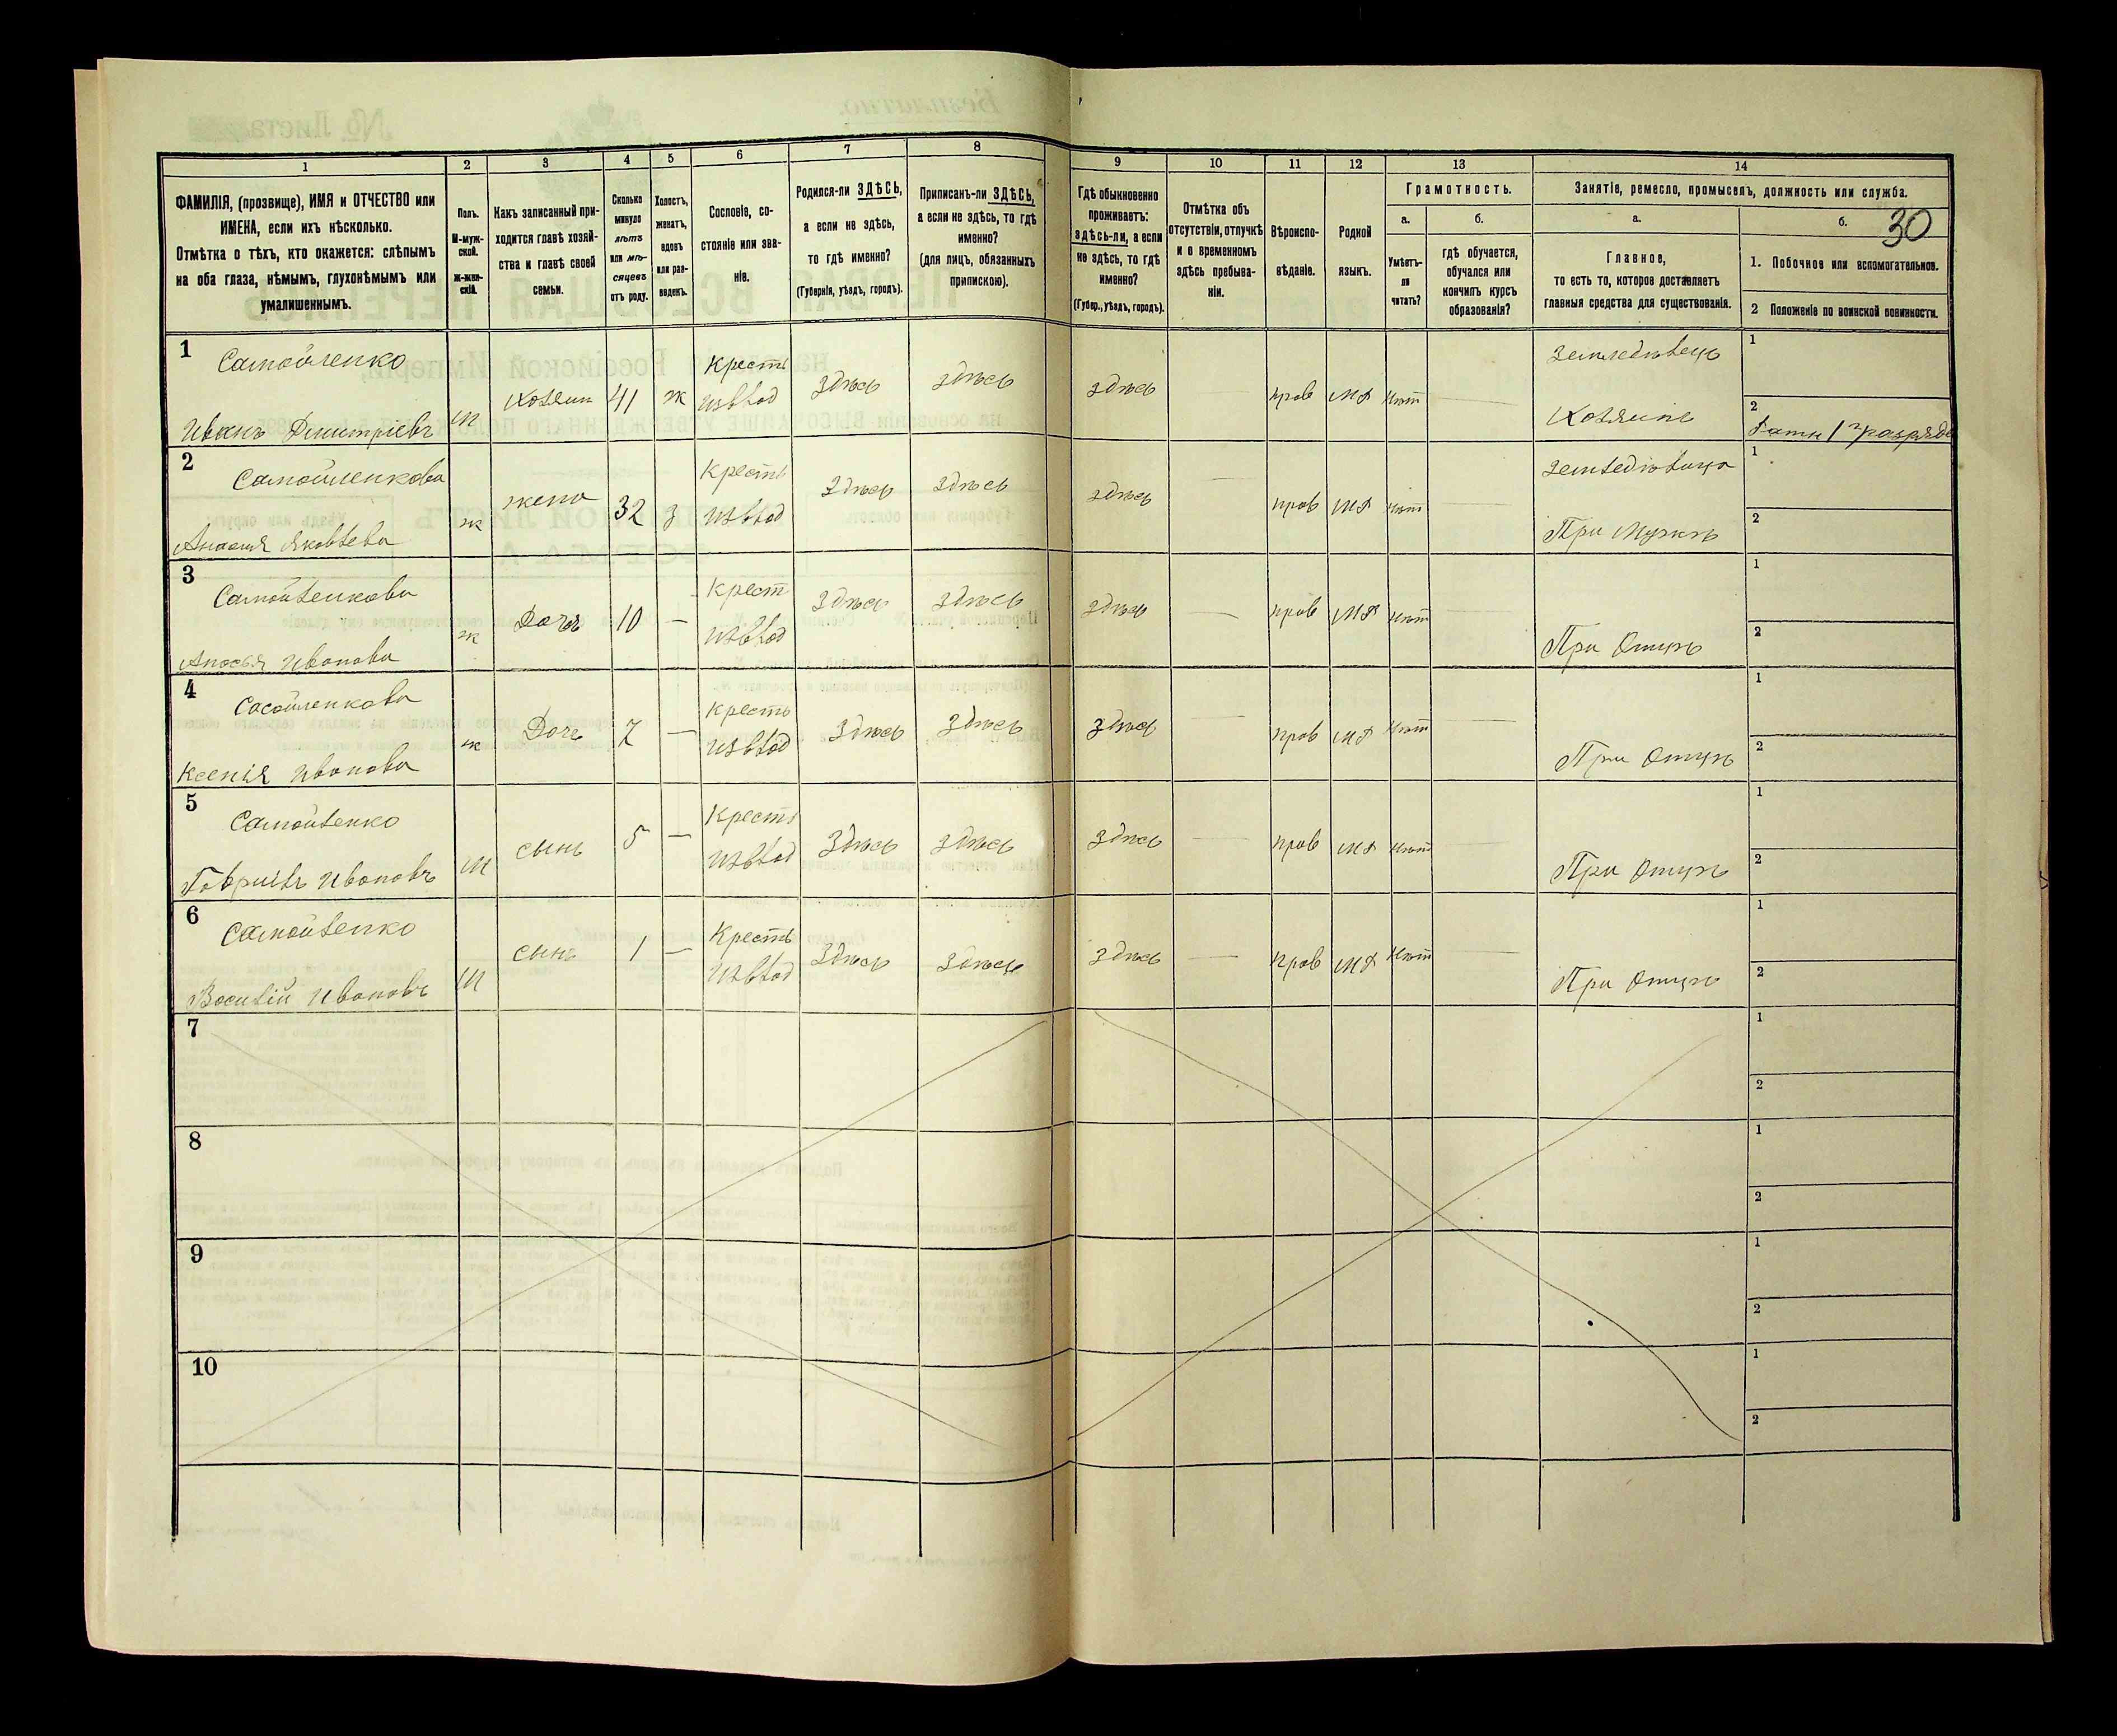 30
1
2
3
4
5
6
7
8
9
10
11
12
13
14
ФАМИЛІЯ, (прозвище), ИМЯ и ОТЧЕСТВО или
ИМЕНА, если ихъ нѣсколько.
Отмѣтка о тѣхъ, кто окажется: слѣпымъ
на оба глаза, нѣмымъ, глухонѣмымъ или
умалишеннымъ.
Полъ.
М-муж-
ской.
Ж-жен-
скій.
Какъ записанный при-
ходится главѣ хозяй-
ства и главѣ своей
семьи.
Сколько
минуло
лѣтъ
или мѣ-
сяцевъ
отъ роду.
Холостъ,
женатъ,
вдовъ
или раз-
веденъ.
Сословіе, со-
стояніе или зва-
ніе.
Родился-ли ЗДѢСЬ,
а если не здѣсь,
то гдѣ именно?
(Губернія, уѣздъ, городъ).
Приписанъ-ли ЗДѢСЬ,
а если не здѣсь, то гдѣ
именно?
(для лицъ, обязанныхъ
припискою).
Гдѣ обыкновенно
проживаетъ:
здѣсь-ли, а если
не здѣсь, то гдѣ
именно?
(Губер., уѣздъ, городъ).
Отмѣтка объ
отсутствіи, отлучкѣ
и о временномъ
здѣсь пребыва-
ніи.
Вѣроиспо-
вѣданіе.
Родной
языкъ.
Грамотность.
а.
Умѣетъ-
ли
читать?
б.
гдѣ обучается,
обучался или
кончилъ курсъ
образованія?
Занятіе, ремесло, промыселъ, должность или служба.
а.
Главное,
то есть то, которое доставляетъ
главныя средства для существованія.
б.
1. Побочное или вспомогательное.
2 Положеніе по воинской повинности.
1
Самойленко
Иванъ Дмитріевъ
м
Хозяин
41
ж
Крестъ
изъ влад
здѣсь
здѣсь
здѣсь
прав
мл
нѣт
Земледѣлецъ
Хозяинъ
1
2
Ратн 1го разряда
2
Самойленкова
Яковлева
ж
жена
32
з
Крестъ
изъ влад
здѣсь
здѣсь
здѣсь
прав
мл
нѣт
При Мужѣ
1
2
3
Самойленкова
Иванова
ж
Дочь
10
—
Крест
изъ влад
здѣсь
здѣсь
здѣсь
прав
мл
нѣт
При Отцѣ
1
2
4
Ксенія Иванова
ж
Дочь
7
—
Крестъ
изъ влад
здѣсь
здѣсь
здѣсь
прав
мл
нѣт
При Отцѣ
1
2
5
Самойленко
Гаврилъ Ивановъ
м
сынъ
5
—
Крестъ
изъ влад
здѣсь
здѣсь
здѣсь
прав
мл
нѣт
При Отцѣ
1
2
6
Самойленко
Василій Ивановъ
м
сынъ
1
—
Крестъ
изъ влад
здѣсь
здѣсь
здѣсь
прав
мл
нѣт
При Отцѣ
1
2
7
1
2
8
1
2
9
1
2
10
1
2